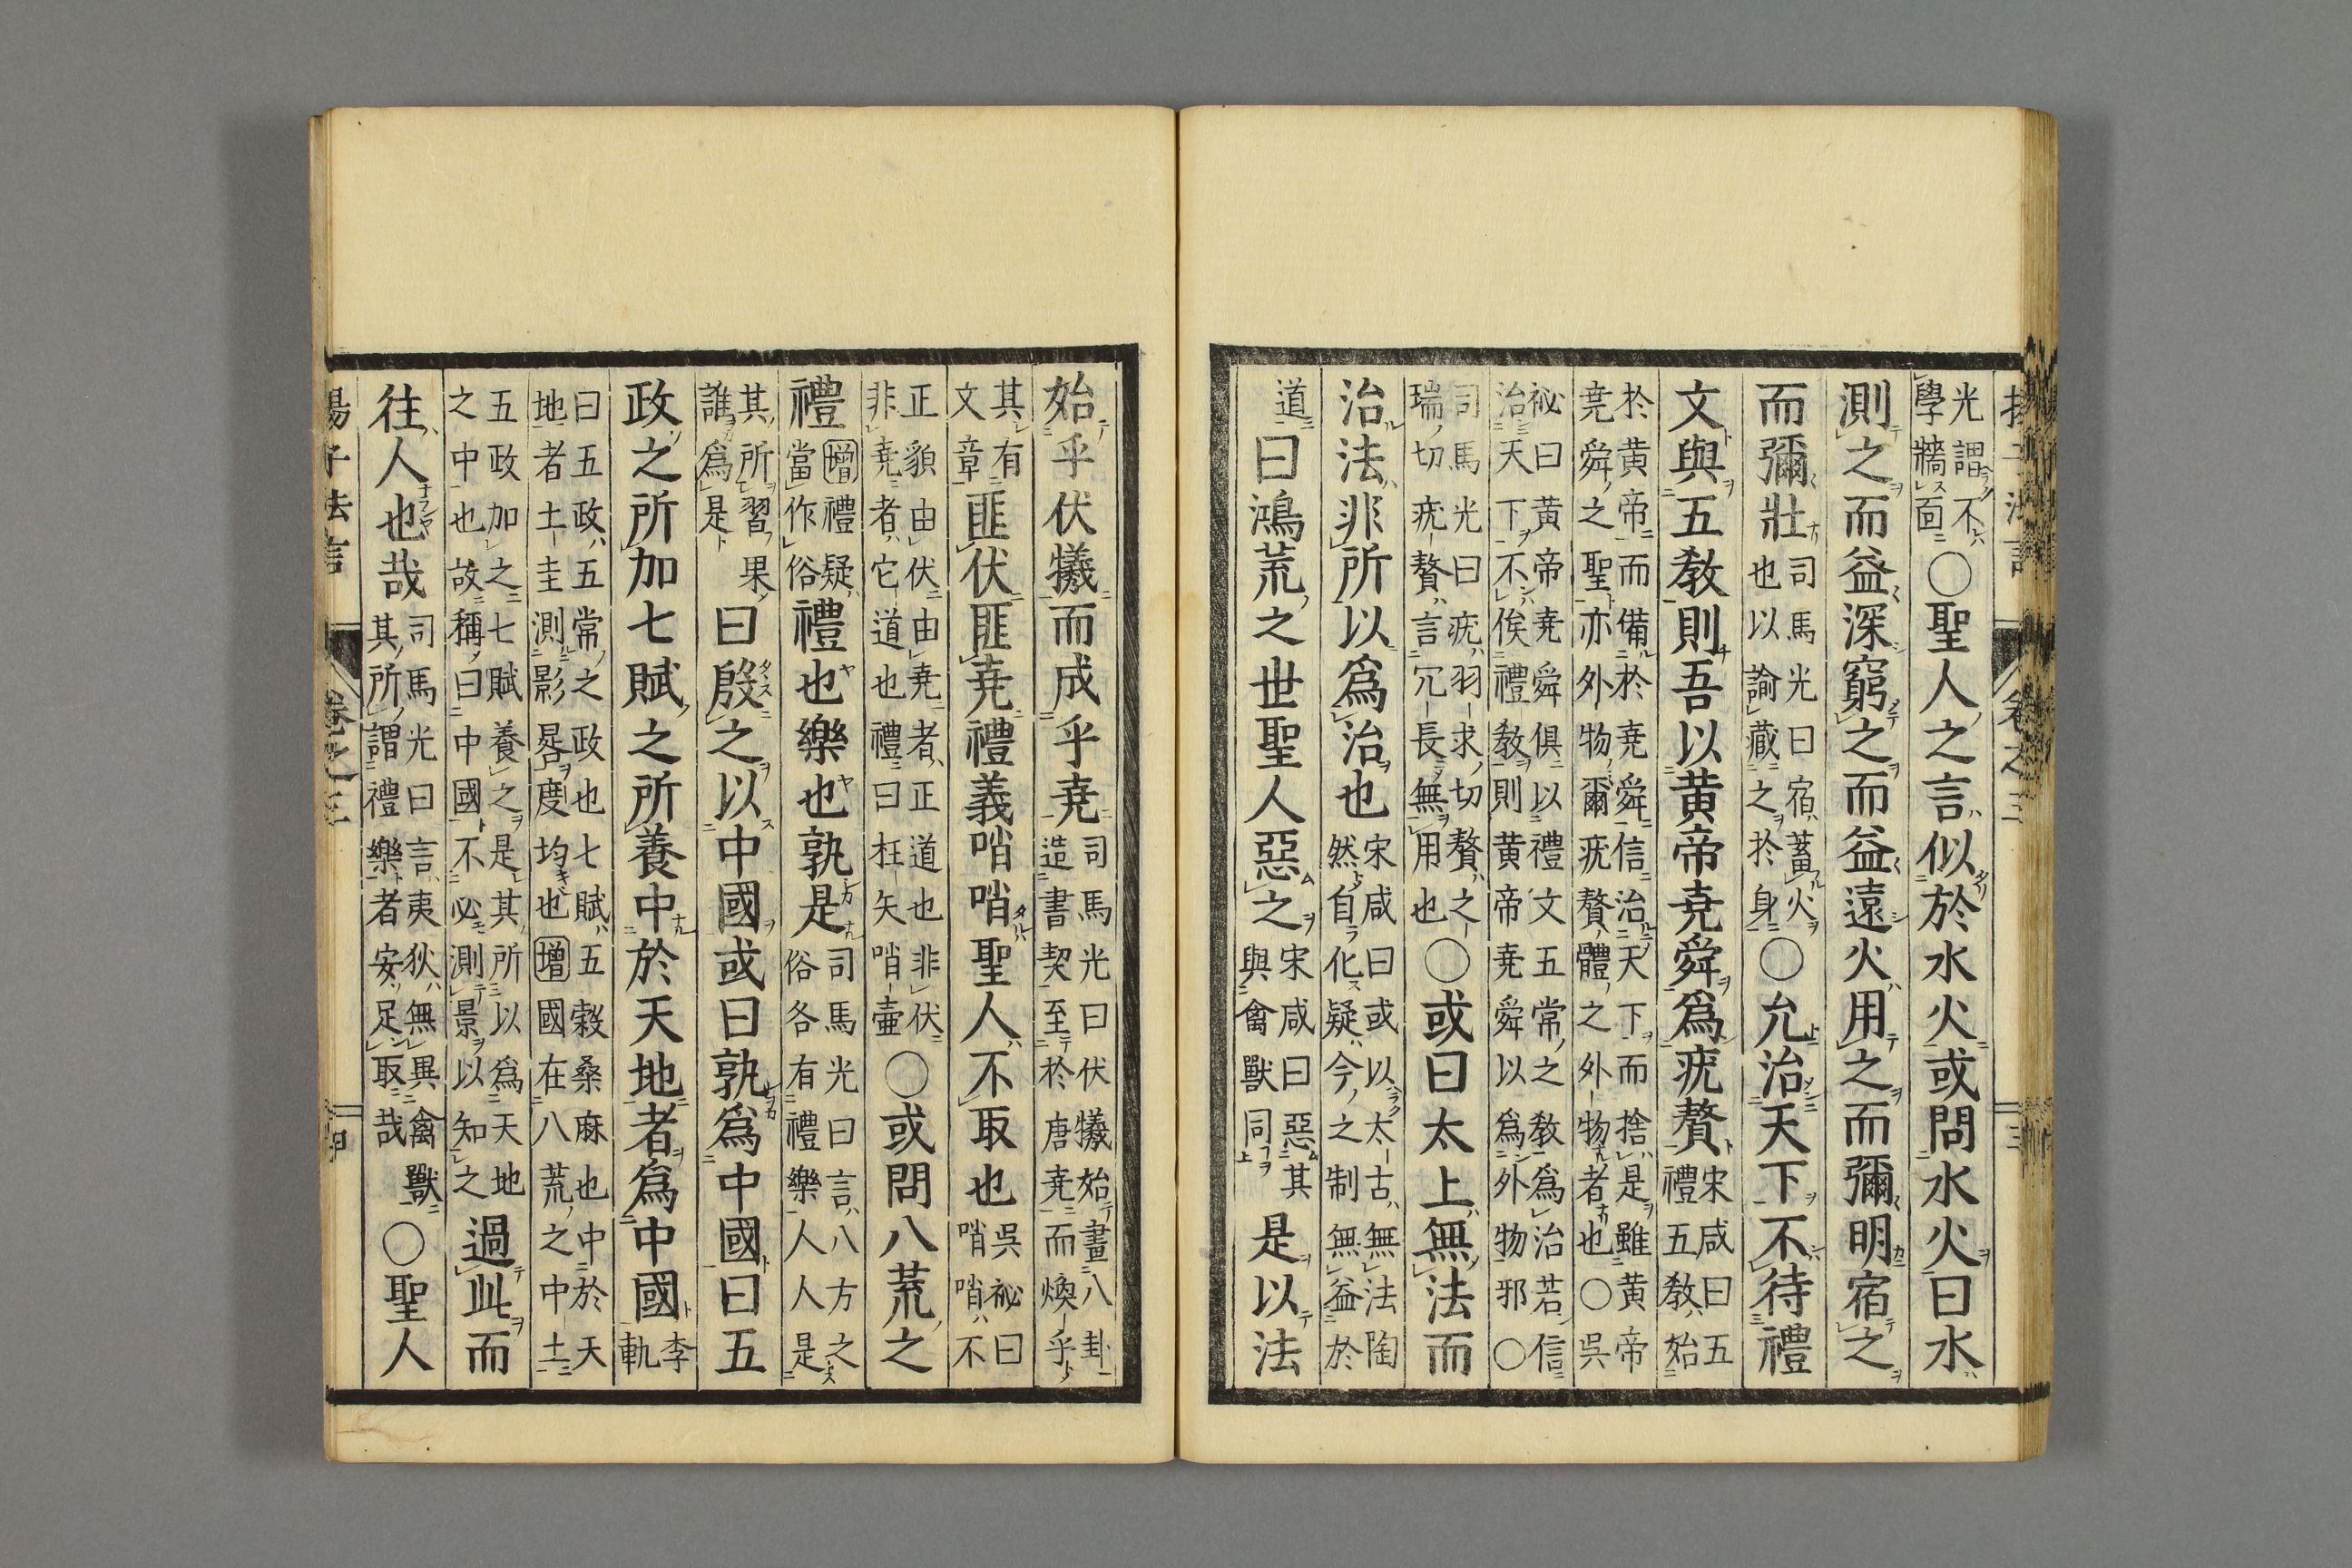 光謂不
學牆面
○聖人之言似於水火或問水火曰水
測之而益深窮之而益遠火用之而彌明宿之
而彌壯
司馬光曰宿蓄火
也以諭藏之於身
○允治天下不待禮
文與五教則吾以黄帝尭舜爲疣贅
宋咸曰五
禮五教始
於黄帝而備於尭舜信治天下而捨是雖黄帝
尭舜之聖亦外物爾疣贅體之外物者也○吳
祕曰黄帝尭舜俱以禮文五常之教爲治若信
治天下不俟禮教則黄帝尭舜以爲外物邪○
司馬光曰疣羽求切贅之
瑞切疣贅言冗長無用也
○或曰太上無法而
治法非所以爲治也
宋咸曰或以太古無法陶
然自化疑今之制無益於
道
曰鴻荒之世聖人惡之
宋咸曰惡其
與禽獸同
是以法
始乎伏犧而成乎尭
司馬光曰伏犧始畫八卦
造書契至於唐尭而煥乎
其有
文章
匪伏匪尭禮義哨哨聖人不取也
吳祕曰
哨哨不
正貌由伏由尭者正道也非伏
非尭者它道也禮曰枉矢哨壷
○或問八荒之
禮
增禮疑
當作俗
禮也樂也孰是
司馬光曰言八方之
俗各有禮樂人人是
其所習果
誰爲是
曰殷之以中國或曰孰爲中國曰五
政之所加七賦之所養中於天地者爲中國
李
軌
曰五政五常之政也七賦五穀桑麻也中於天
地者土圭測影晷度均也增國在八荒之中土
五政加之七賦養之是其所以爲天地
之中也故稱曰中國不必測景以知之
過此而
往人也哉
司馬光曰言夷狄無異禽獸
其所謂禮樂者安足取哉
○聖人
揚子法言 卷之三